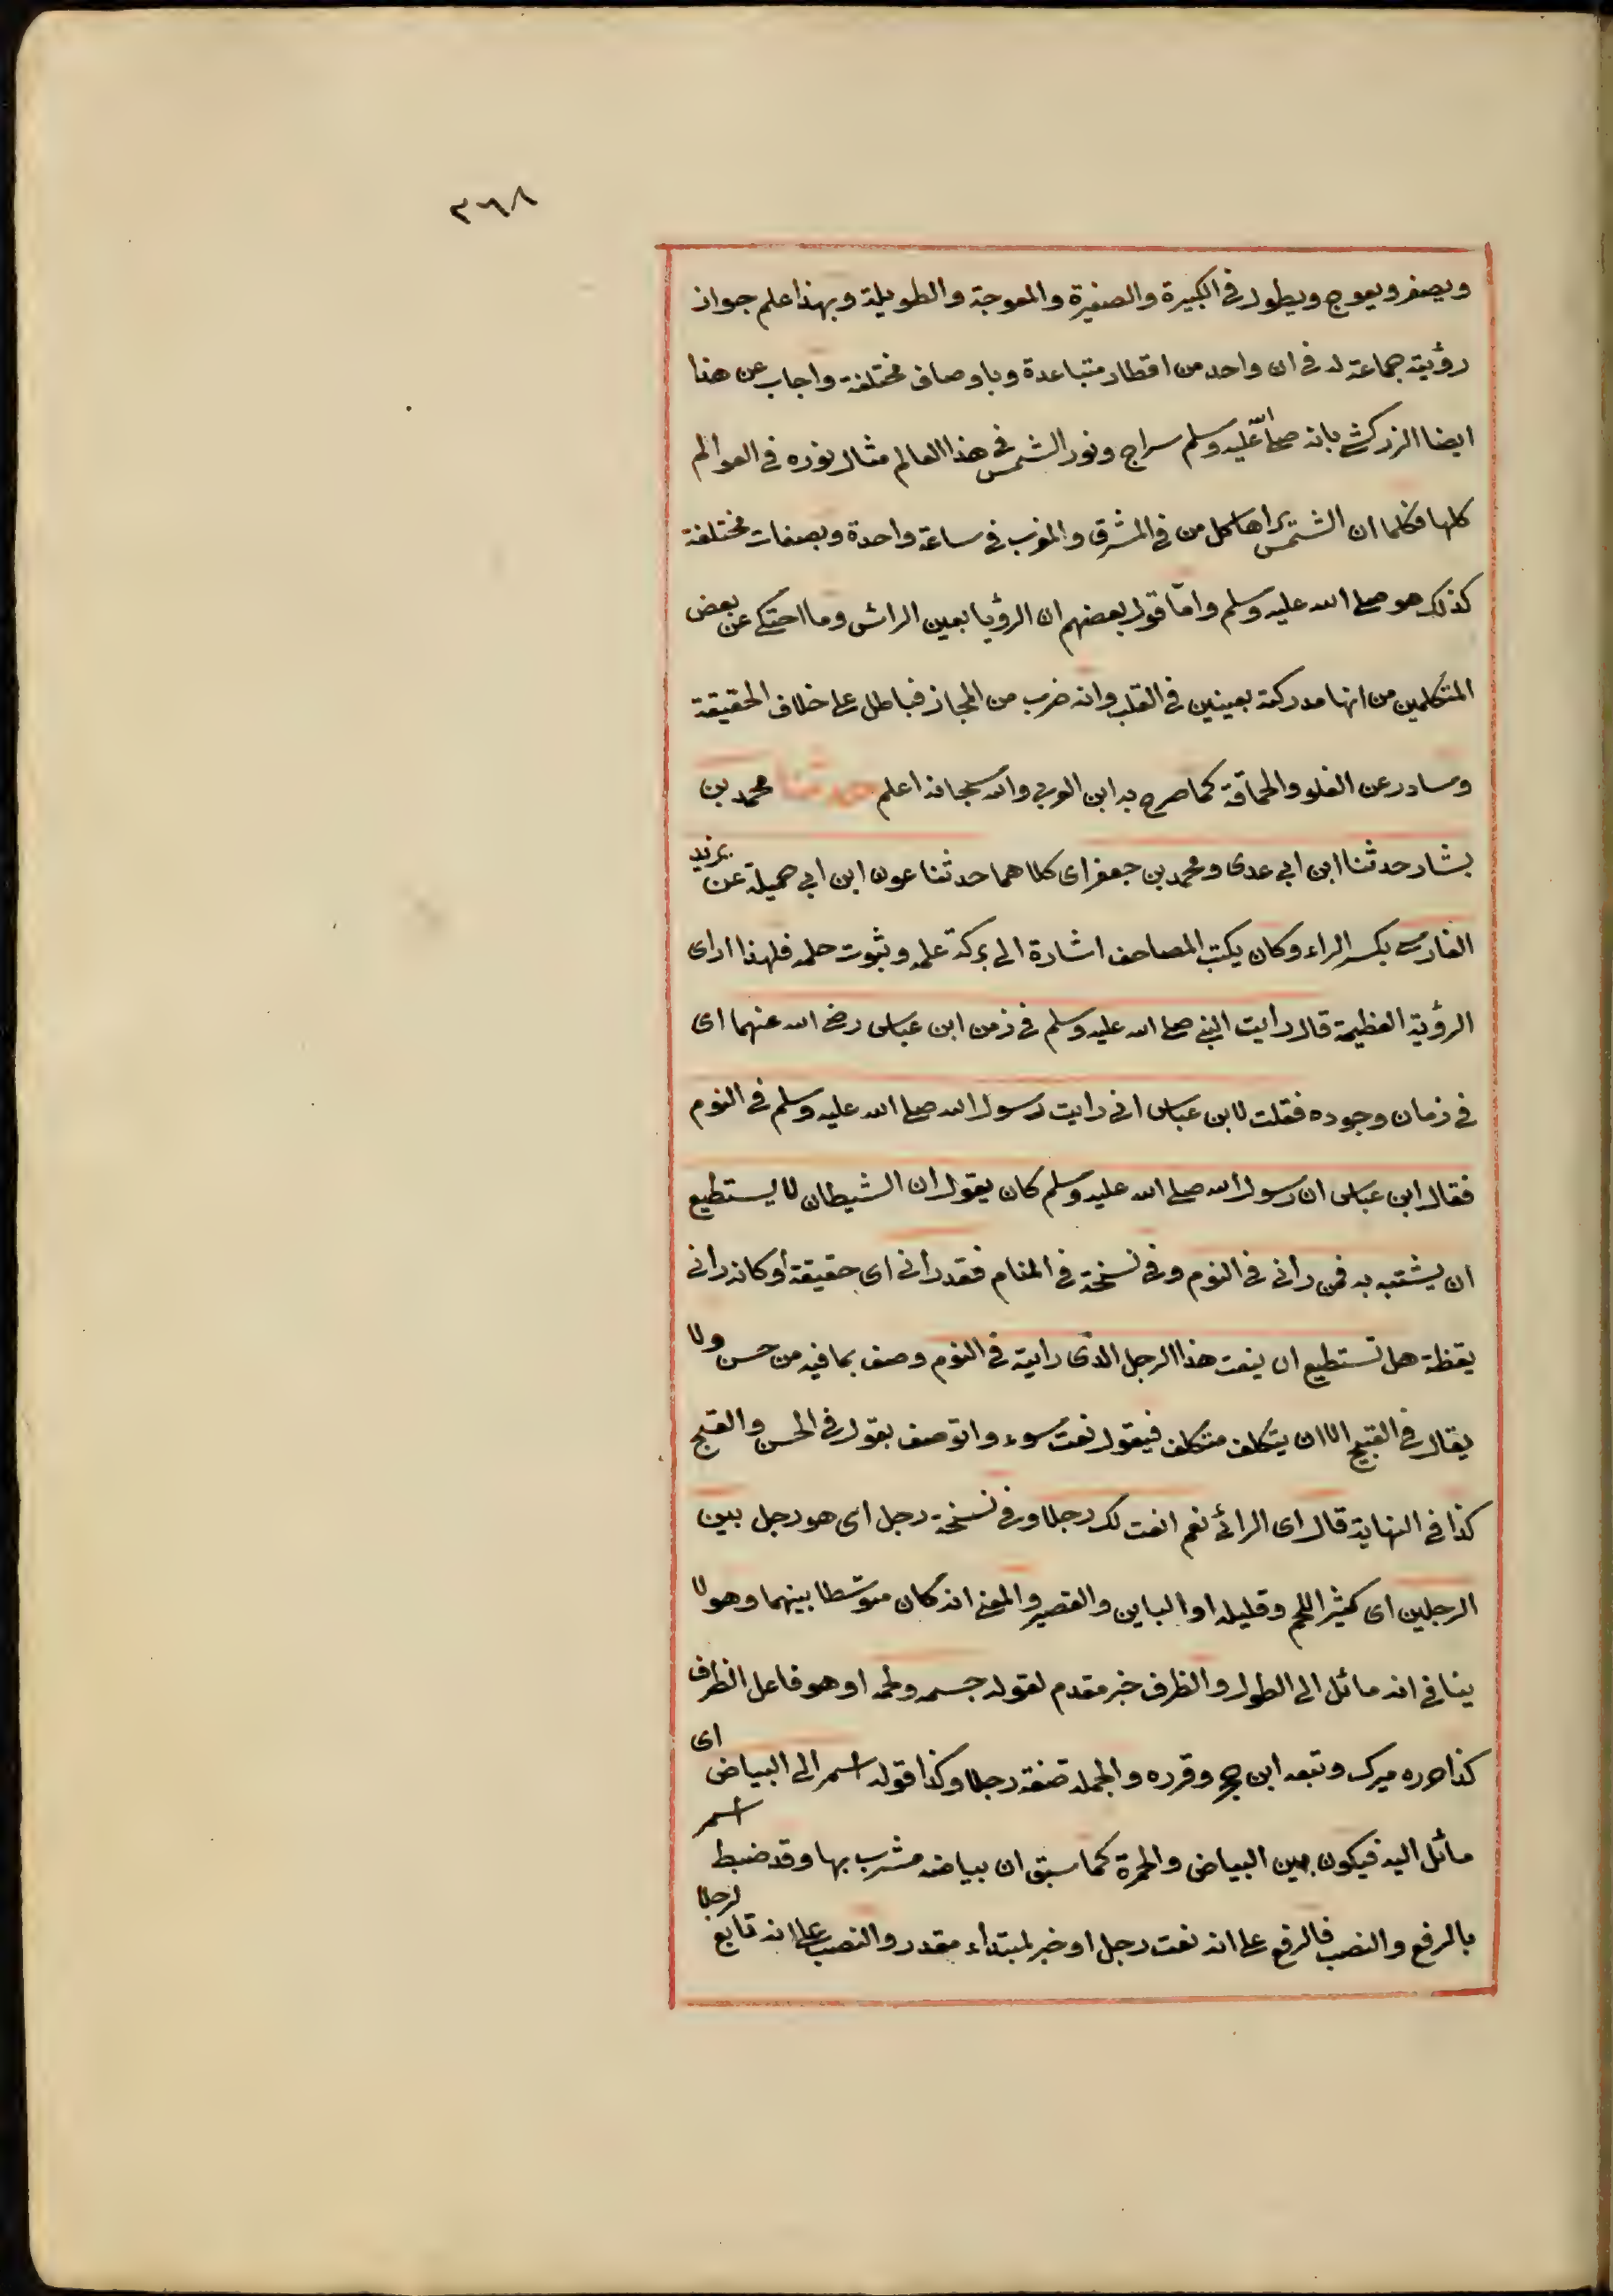 ٣٦٨
ويصغر ويعوج ويطول في الكبيرة والصغيرة والمعوجة والطويلة وبهذا علم جواز
رؤية جماعة له في ان واحد من اقطار متباعدة وباوصاف مختلفة واجاب عن هذا
ايضا الزركشي بانه صلى الله عليه وسلم سراج ونور الشمس في هذا العالم مثال نوره في العوالم
كلها فكلما ان الشمس يراها كل من في المشرق والمغرب في ساعة واحدة وبصفات مختلفة
كذلك هو صلى الله عليه وسلم واما قول بعضهم ان الرؤيا بعين الرائس وما احتكى عن بعض
المتكلمين من انها مدركة بعينين في القلب وانه ضرب من المجاز فباطل على خلاف الحقيقة
وسادر عن الغلو والحماقة كما صرح به ابن العربي والله سبحانه اعلم حدثنا محمد بن
بشار حدثنا ابن ابي عدى ومحمد بن جعفر اى كلاهما حدثنا عون ابن ابي جميلة عن يزيد
الفارسى بكسر الراء وكان يكتب المصاحف اشارة الى بركة علمه وثبوت حلمه فلهذا اراى
الرؤية العظيمة قال رايت النبي صلى الله عليه وسلم في زمن ابن عباس رضي الله عنهما اى
في زمان وجوده فقلت لابن عباس اني رايت رسول الله صلى الله عليه وسلم في النوم
فقال ابن عباس ان رسول الله صلى الله عليه وسلم كان يقول ان الشيطان لا يستطيع
ان يشتبه به فمن رانى في النوم وفي نسخة في المنام فقد رانى اى حقيقة او كانه رانى
يقظة هل تستطيع ان ينعت هذا الرجل الذى رايته في النوم وصف بما فيه من حسن ولا
يقال في القبيح الا ان يتكلف متكلف فيقول نعت سوء والوصف يقول في الحسن والقبيح
كذا في النهاية قال اى الرائي نعم انعت لك رجلا وفي نسخة رجل اى هو رجل بين
الرجلين اى كثير اللحم وقليله او الباين والقصير والمعنى انه كان متوسطا بينهما وهو لا
ينافي انه مائل الى الطول والظرف خبر مقدم لقوله جسمه ولحمه او هو فاعل الظرف
كذا حرره ميرك وتبعه ابن حجر وقرره والجملة صفة رجلا وكذا قوله اسمر الى البياض اى
مائل اليه فيكون بين البياض والحمرة كما سبق ان بياضه مشرب بها وقد ضبط اسمر
بالرفع والنصب فالرفع على انه نعت رجل او خبر لمبتداء مقدر والنصب على انه تابع لرجلا